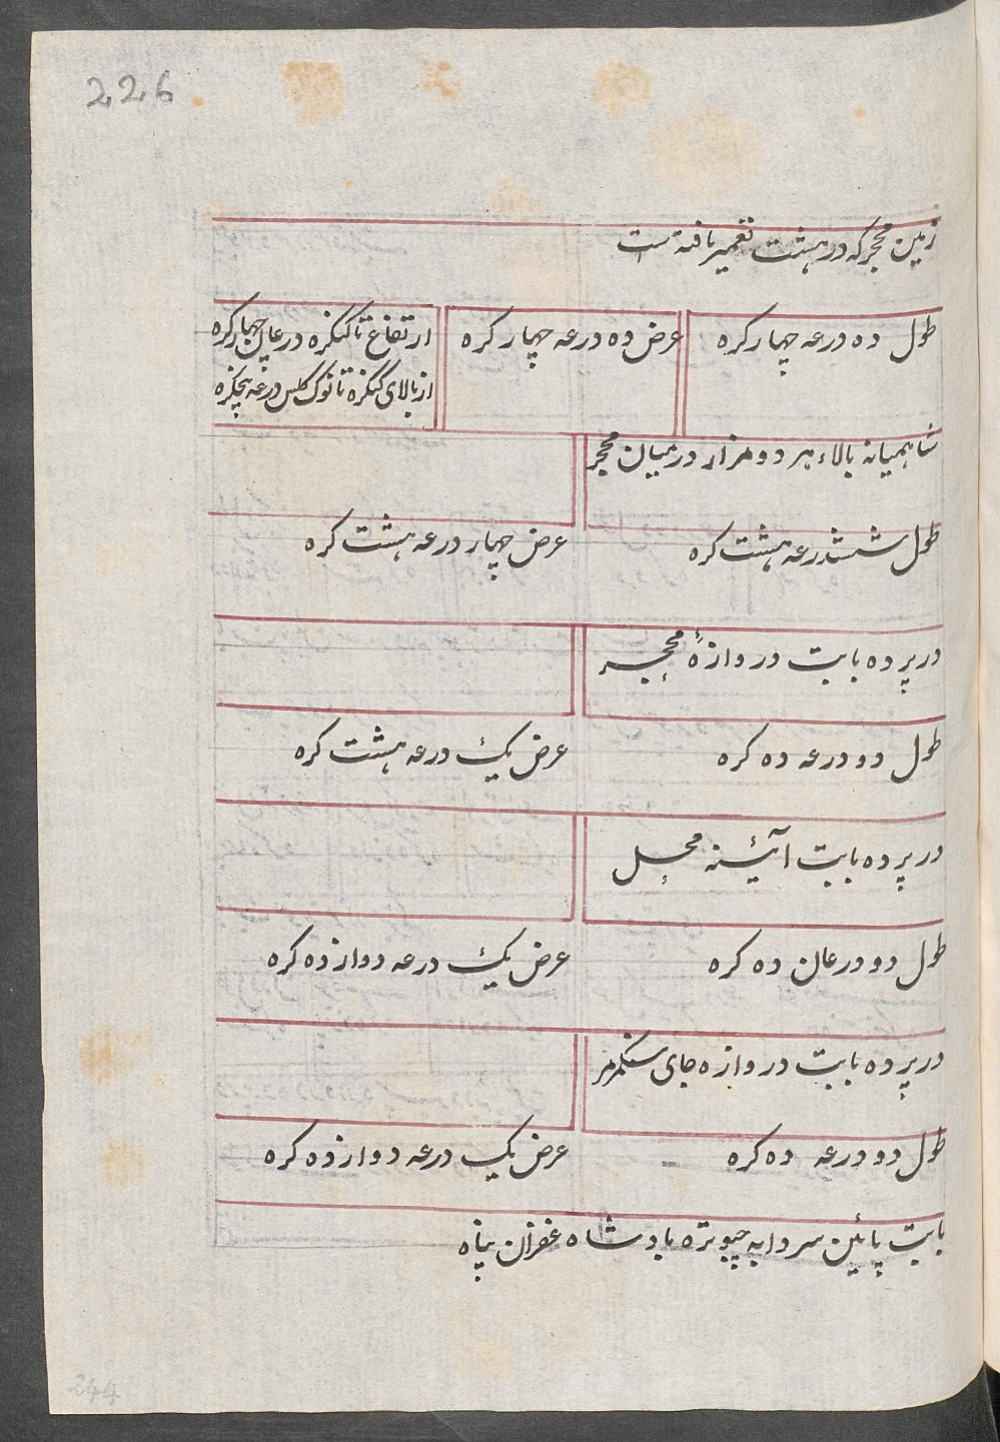 226
زمین محجر که در هشت تعمیر یافته است
طول ده درعه چهار کره
عرض ده درعه چهار کره
ارتفاع تا کنکره درعان چهار کره
از بالای کنکره تا نوک کلس درعه پنجکره
شاهمیانه بالاء هر دو مزار درمیان محجر
طول شش درعه هشت کره
عرض چهار درعه هشت کره
در پرده بابت دروازهٔ محجر
طول دو درعه ده کره
عرض یک درعه هشت کره
در پرده بابت آئینه محل
طول دو درعان ده کره
عرض یک درعه دوازده کره
در پرده بابت دروازه جای سنگمرمر
طول دو درعه ده کره
عرض یک درعه دوازده کره
بابت پائین سردابه چبوتره بادشاه غفران پناه
244